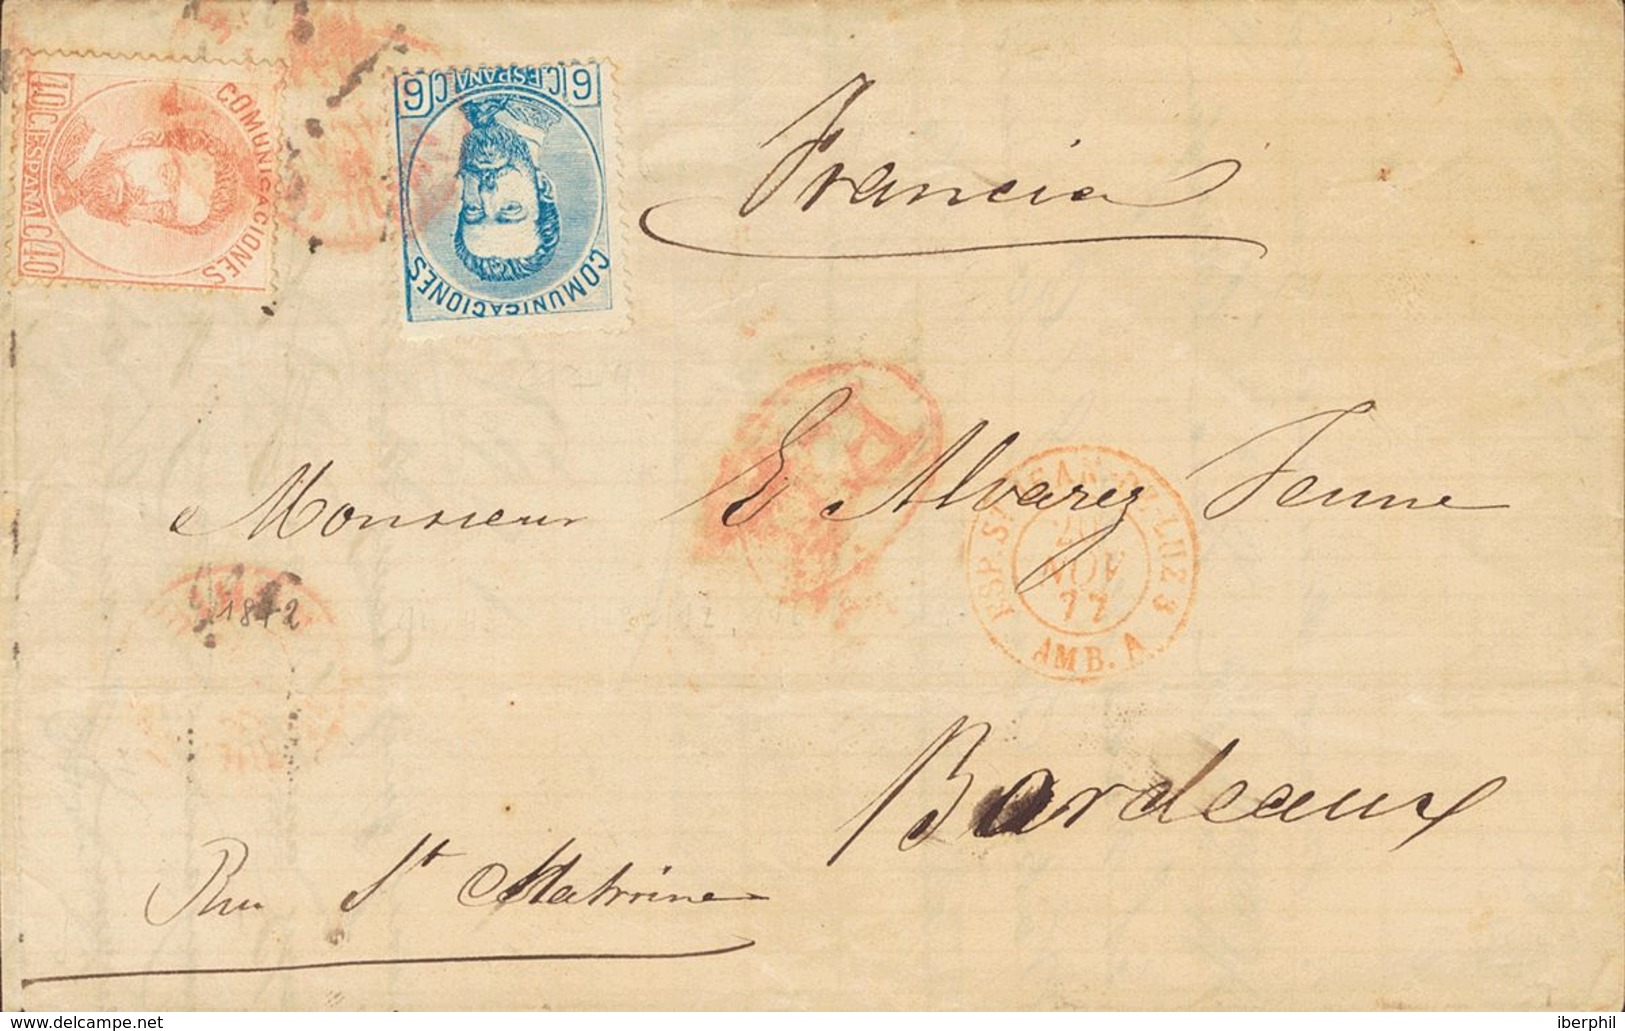 COMUNICACIONES
40 C. ESPANA C. 40
6 C. ESPANA C. 6
COMUNICACIONES
Francia
Monsieur E Alvarez Jeune
ESP. St JEAN-DE-LUZ 3
NOV
72
AMB. A
1872
Bordeaux
Rue St
www.delcampe.net
iberphil